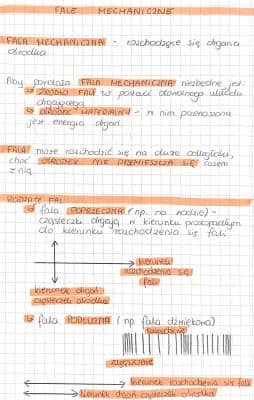 FALE MECHANICZNE
FALA MECHANICZNA - rozchodzące się drgania
ośrodka.
Aby powstała FALA MECHANICZNA niezbędne jest:
↳ ŹRÓDŁO FALI w postaci dowolnego układu
drgającego
↳ OŚRODEK MATERIALNY - w nim przenoszona
jest energia drgań.
FALA może rozchodzić się na duże odległości,
choć OŚRODEK NIE PRZEMIESZCZA SIĘ razem
z nią.
RODZAJE FAL
↳ fala POPRZECZNA (np. na wodzie) -
cząsteczki drgają w kierunku prostopadłym
do kierunku rozchodzenia się fali
kierunek
rozchodzenia się
fali
kierunek drgań
cząsteczek ośrodka
↳ fala PODŁUŻNA (np. fala dźwiękowa)
zagęszczenie
kierunek rozchodzenia się fali
kierunek drgań cząsteczek ośrodka